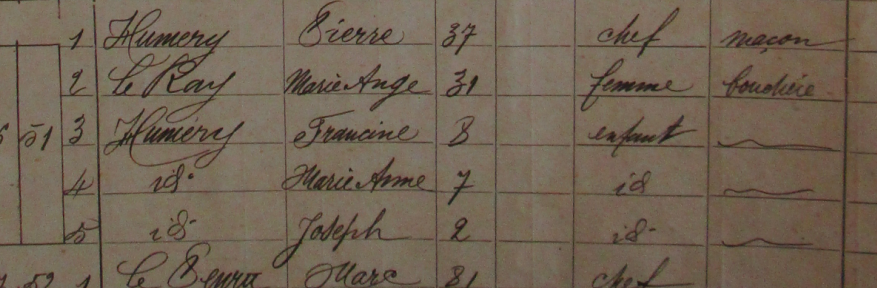 1 Humery Pierre 37 chef maçon
2 Le Ray Marie Ange 31 femme bouchère
51 3 Humery Francine 8 enfant
4 id. Marie Anne 7 id
5 id. Joseph 2 id.
52 1 Le Marc 81 chef